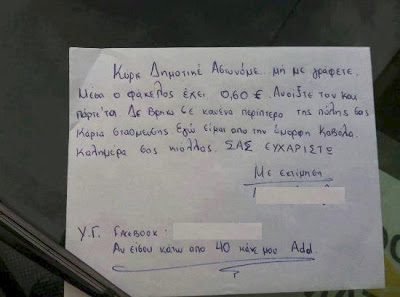 Κυριε Δημοτικέ Αστυνόμε.. μη με γράφετε.
Μέσα ο φάκελος έχει 0,60 €. Ανοιξτε τον και
πάρτε τα. Δε βρηκα σε κανένα περίπτερο της πόλης σας
κάρτα στάθμευσης Εγώ είμαι από την όμορφη Καβάλα.
Καλημέρα σας κιολλας. ΣΑΣ ΕΥΧΑΡΙΣΤΩ
Με εκτίμηση
Υ.Γ. FACEBOOK :
Αν είσαι κάτω απο 40 κάνε μου Add